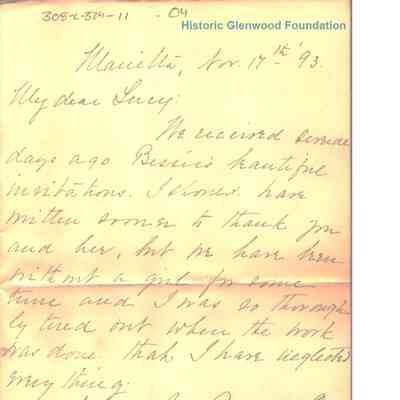 308-L-574-11 - 04
Historic Glenwood Foundation
Marietta, Nov. 17th '93.
My dear Lucy:
We received several
days ago Bessie's beautiful
invitations. I should have
written sooner to thank you
and her, but we have been
without a girl for some
time and I was so thorough-
ly tired out when the work
was done that I have neglected
every thing.